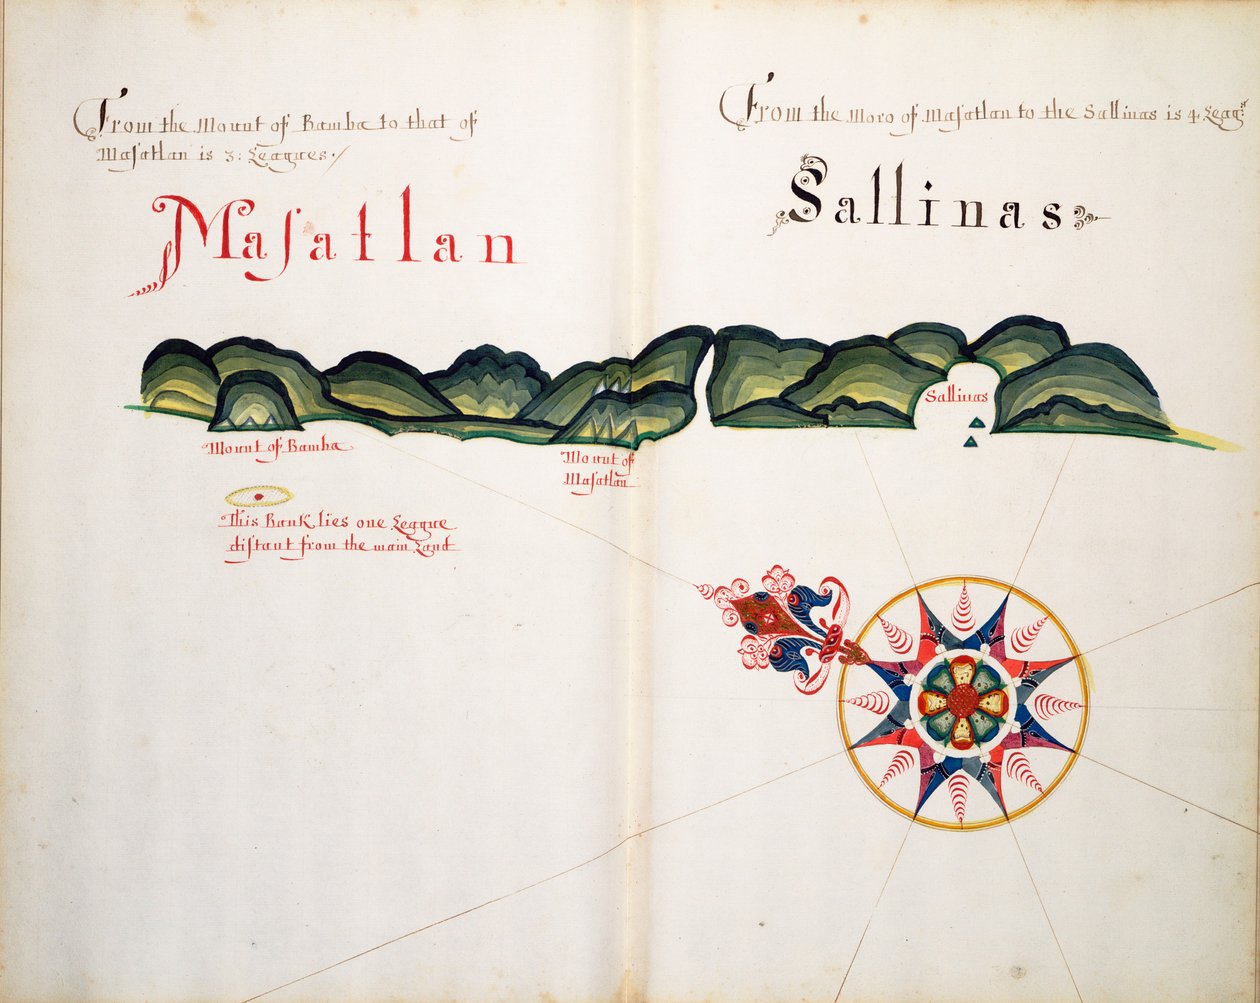 From the Mount of Bamba to that of
Maſatlan is 3: Leagues./
Maſatlan
From the Moro of Maſatlan to the Sallinas is 4. Leags
Sallinas
Sallinas
Mount of Bamba
Mount of
Maſatlan
This Bank lies one League
diſtant from the main Land